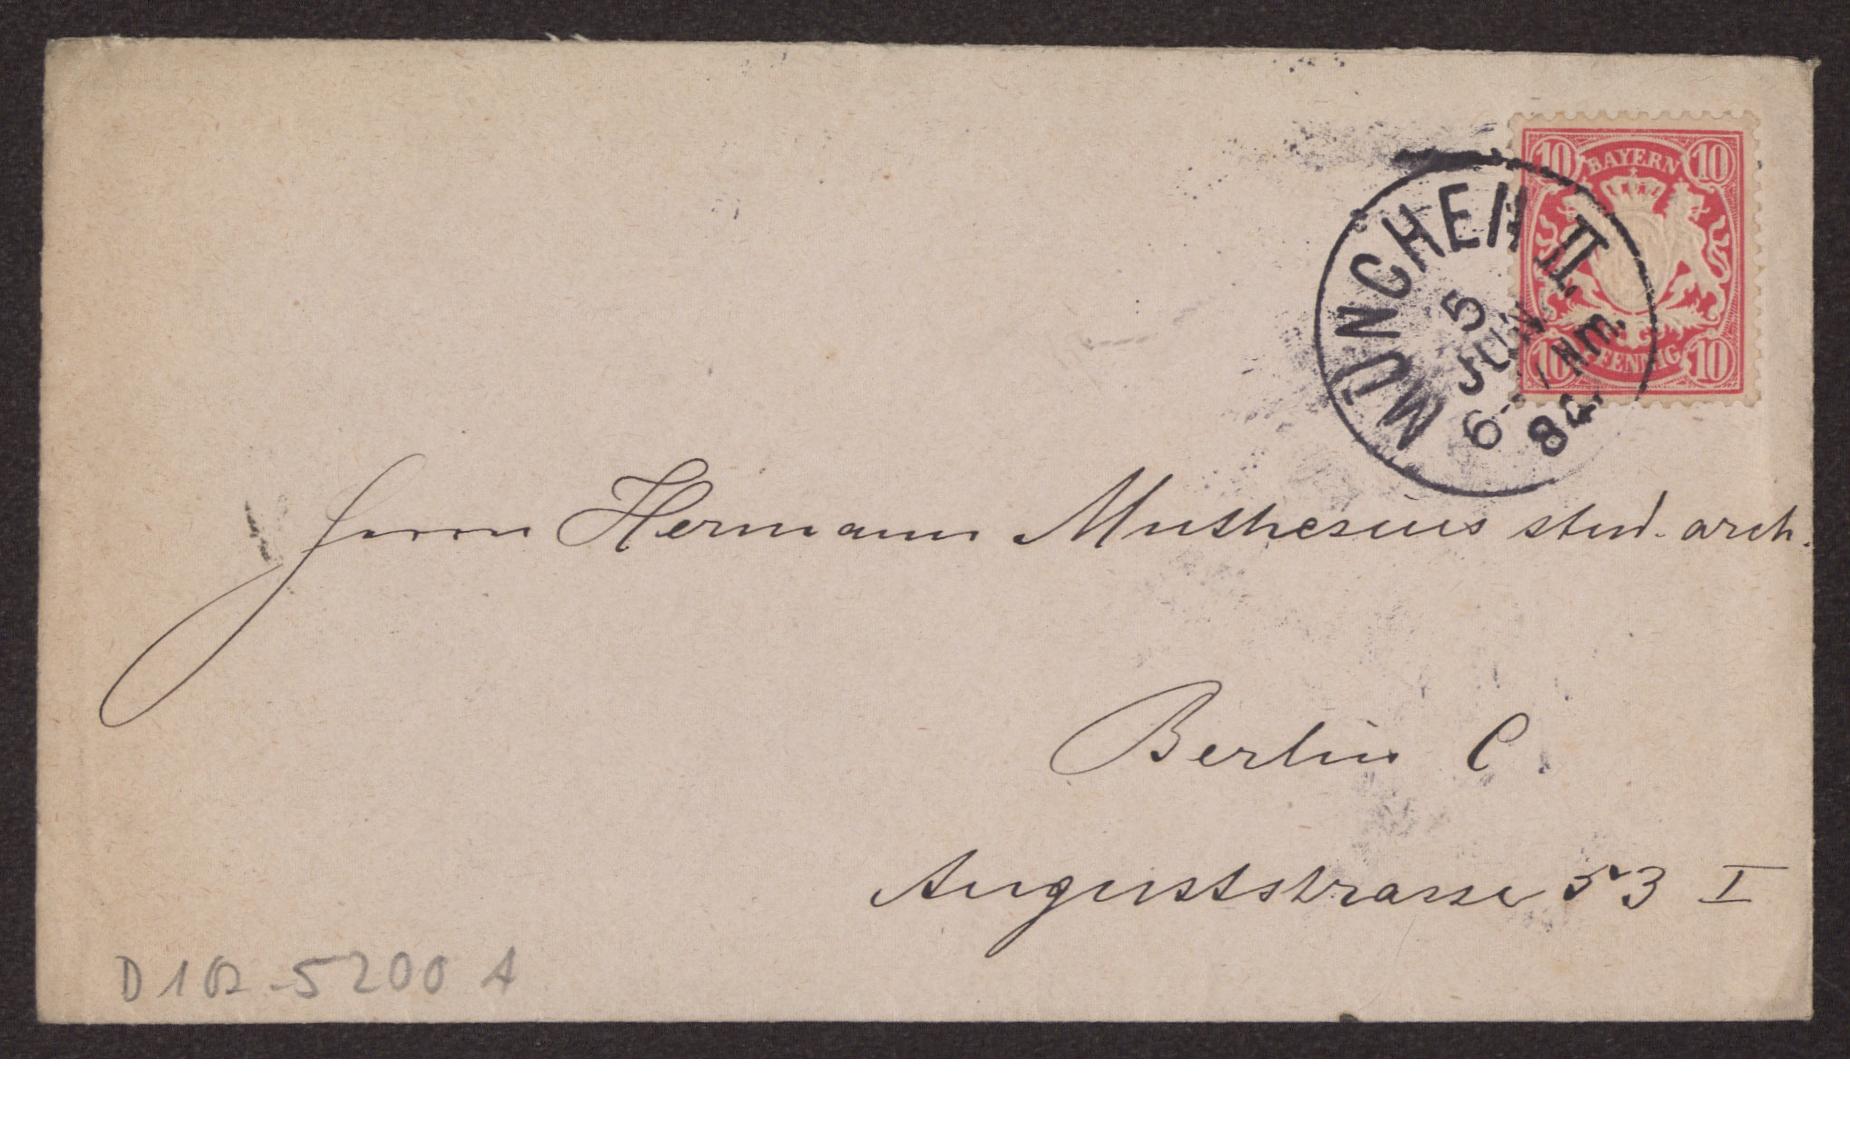 10 BAYERN 10
10 PFENNIG 10
MÜNCHEN II.
5
JUN
6-7 NM.
84
Herrn Hermann Muthesius stud. arch.
Berlin C.
Auguststrasse 53 I
D 102-5200 A